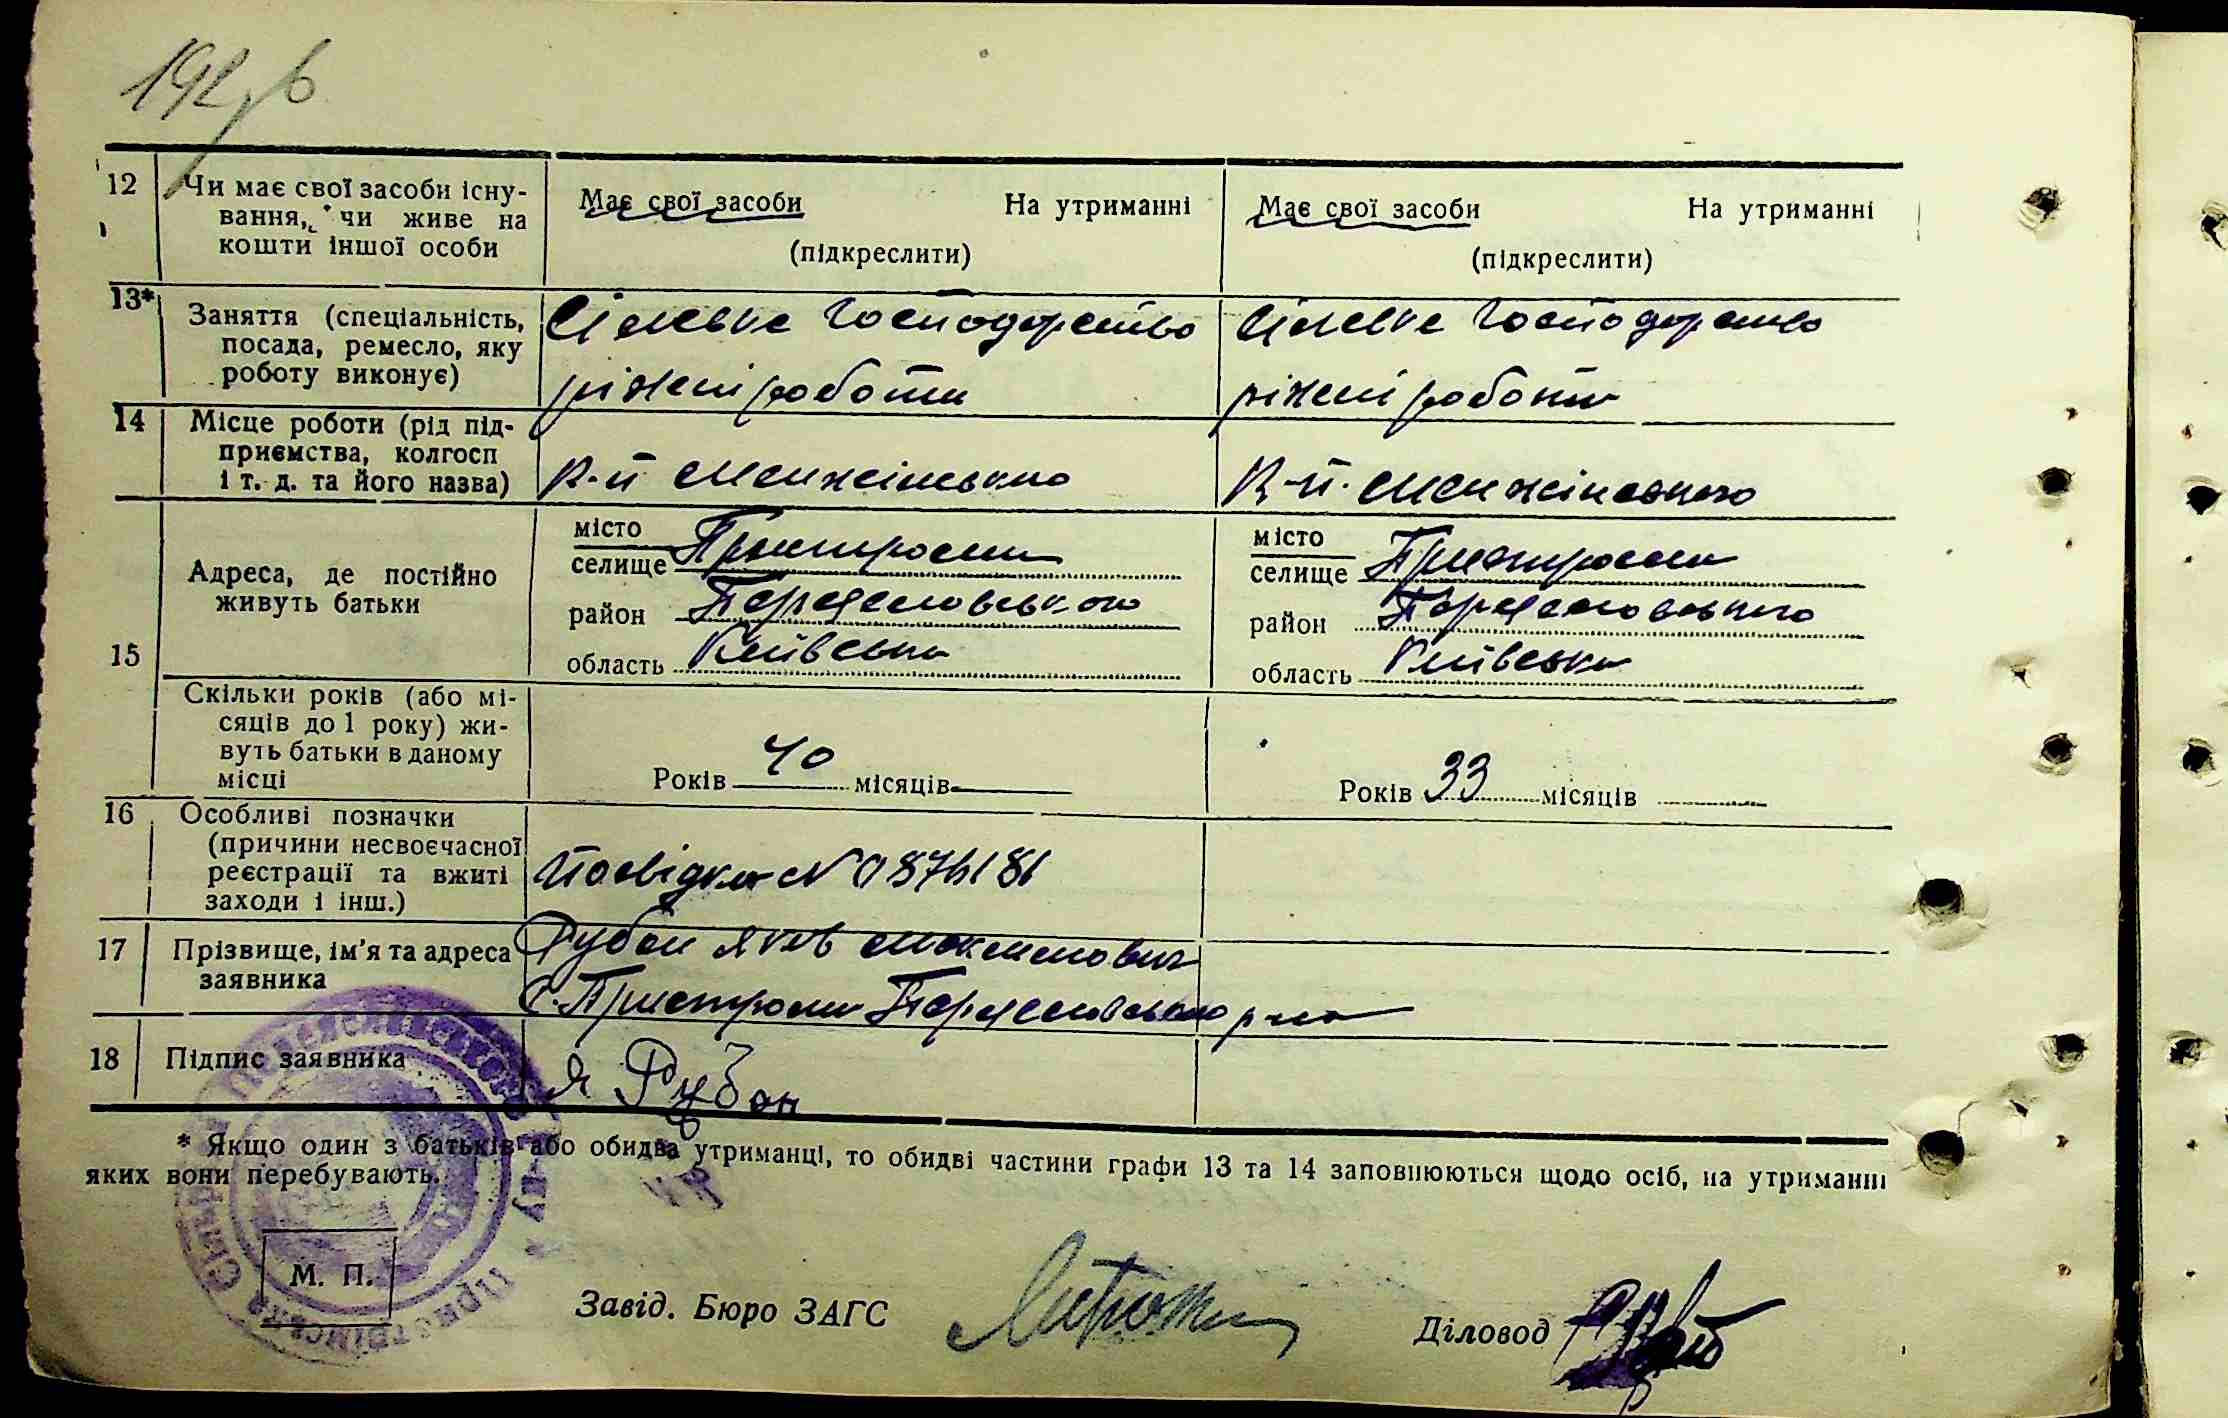 192 в
12 Чи має свої засоби існу-
вання, чи живе на
кошти іншої особи
Має свої засоби На утриманні
(підкреслити)
Має свої засоби На утриманні
(підкреслити)
13* Заняття (спеціальність,
посада, ремесло, яку
роботу виконує)
Сільське господарство
ріжні роботи
Сільське господарство
ріжні роботи
14 Місце роботи (рід під-
приємства, колгосп
і т. д. та його назва)
К-п Менжінського
К-п. Менжінського
15 Адреса, де постійно
живуть батьки
місто
селище Пристроми
район Переяславського
область Київська
місто
селище Пристроми
район Переяславського
область Київська
Скільки років (або мі-
сяців до 1 року) жи-
вуть батьки в даному
місці
Років 40 місяців
Років 33 місяців
16 Особливі позначки
(причини несвоєчасної
реєстрації та вжиті
заходи і інш.)
Посвідка №
17 Прізвище, ім'я та адреса
заявника
Рубан Яков
с. Пристроми Переяславського р-на
18 Підпис заявника
Я Рубан
* Якщо один з батьків або обидва утриманці, то обидві частини графи 13 та 14 заповнюються щодо осіб, на утриманні
яких вони перебувають.
М. П.
Завід. Бюро ЗАГС
Діловод